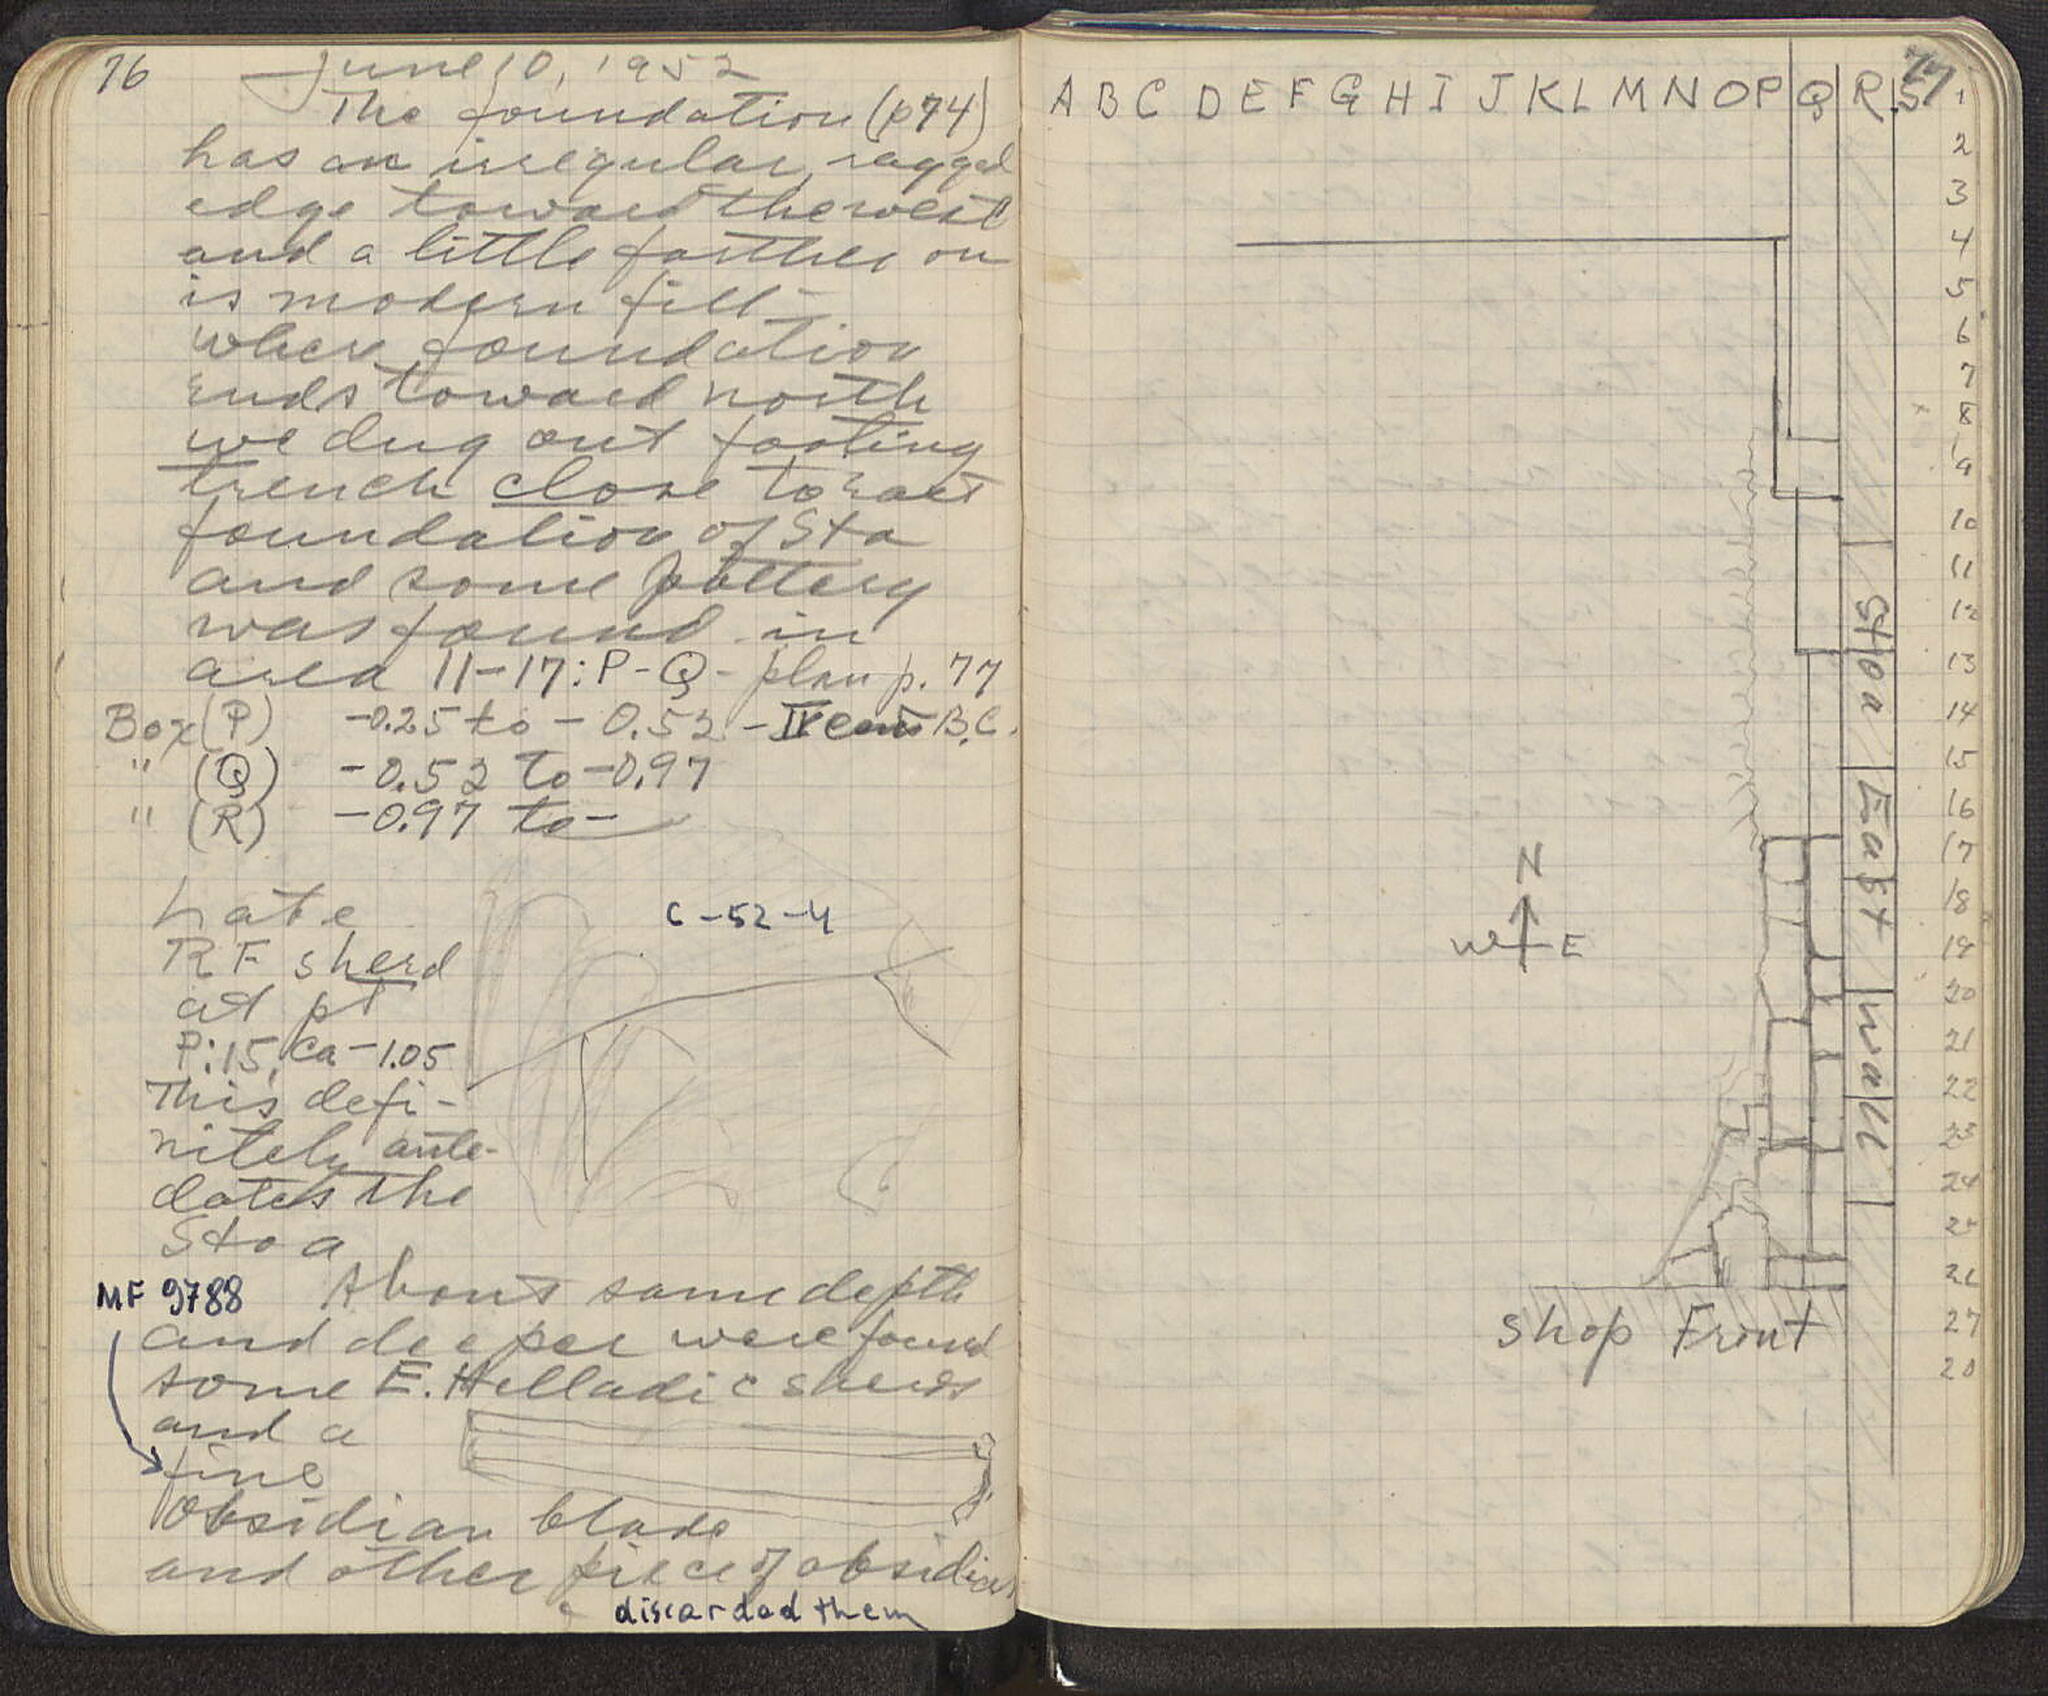 76
June 10, 1952
The foundation (p74)
has an irregular, ragged
edge toward the west
and a little farther on
is modern fill -
where foundation
ends toward north
we dug out footing
trench close to east
foundation of Sto
and some pottery
was found in
area 11-17: P-Q - plan p. 77
Box (P) -0.25 to -0.52 - IV cent B.C.
" (Q) -0.52 to -0.97
" (R) -0.97 to -
Late
RF sherd
at pt
P:15, ca -1.05
This defi-
nitely ante-
dates the
Stoa
C-52-4
MF 9788
About same depth
and deeper were found
some E. Helladic sherds
and a
fine
obsidian blade
and other piece of obsidian
discarded them
77
A B C D E F G H I J K L M N O P Q R S
1
2
3
4
5
6
7
8
9
10
11
12
13
14
15
16
17
18
19
20
21
22
23
24
25
26
27
28
Stoa East Wall
N
W E
Shop Front